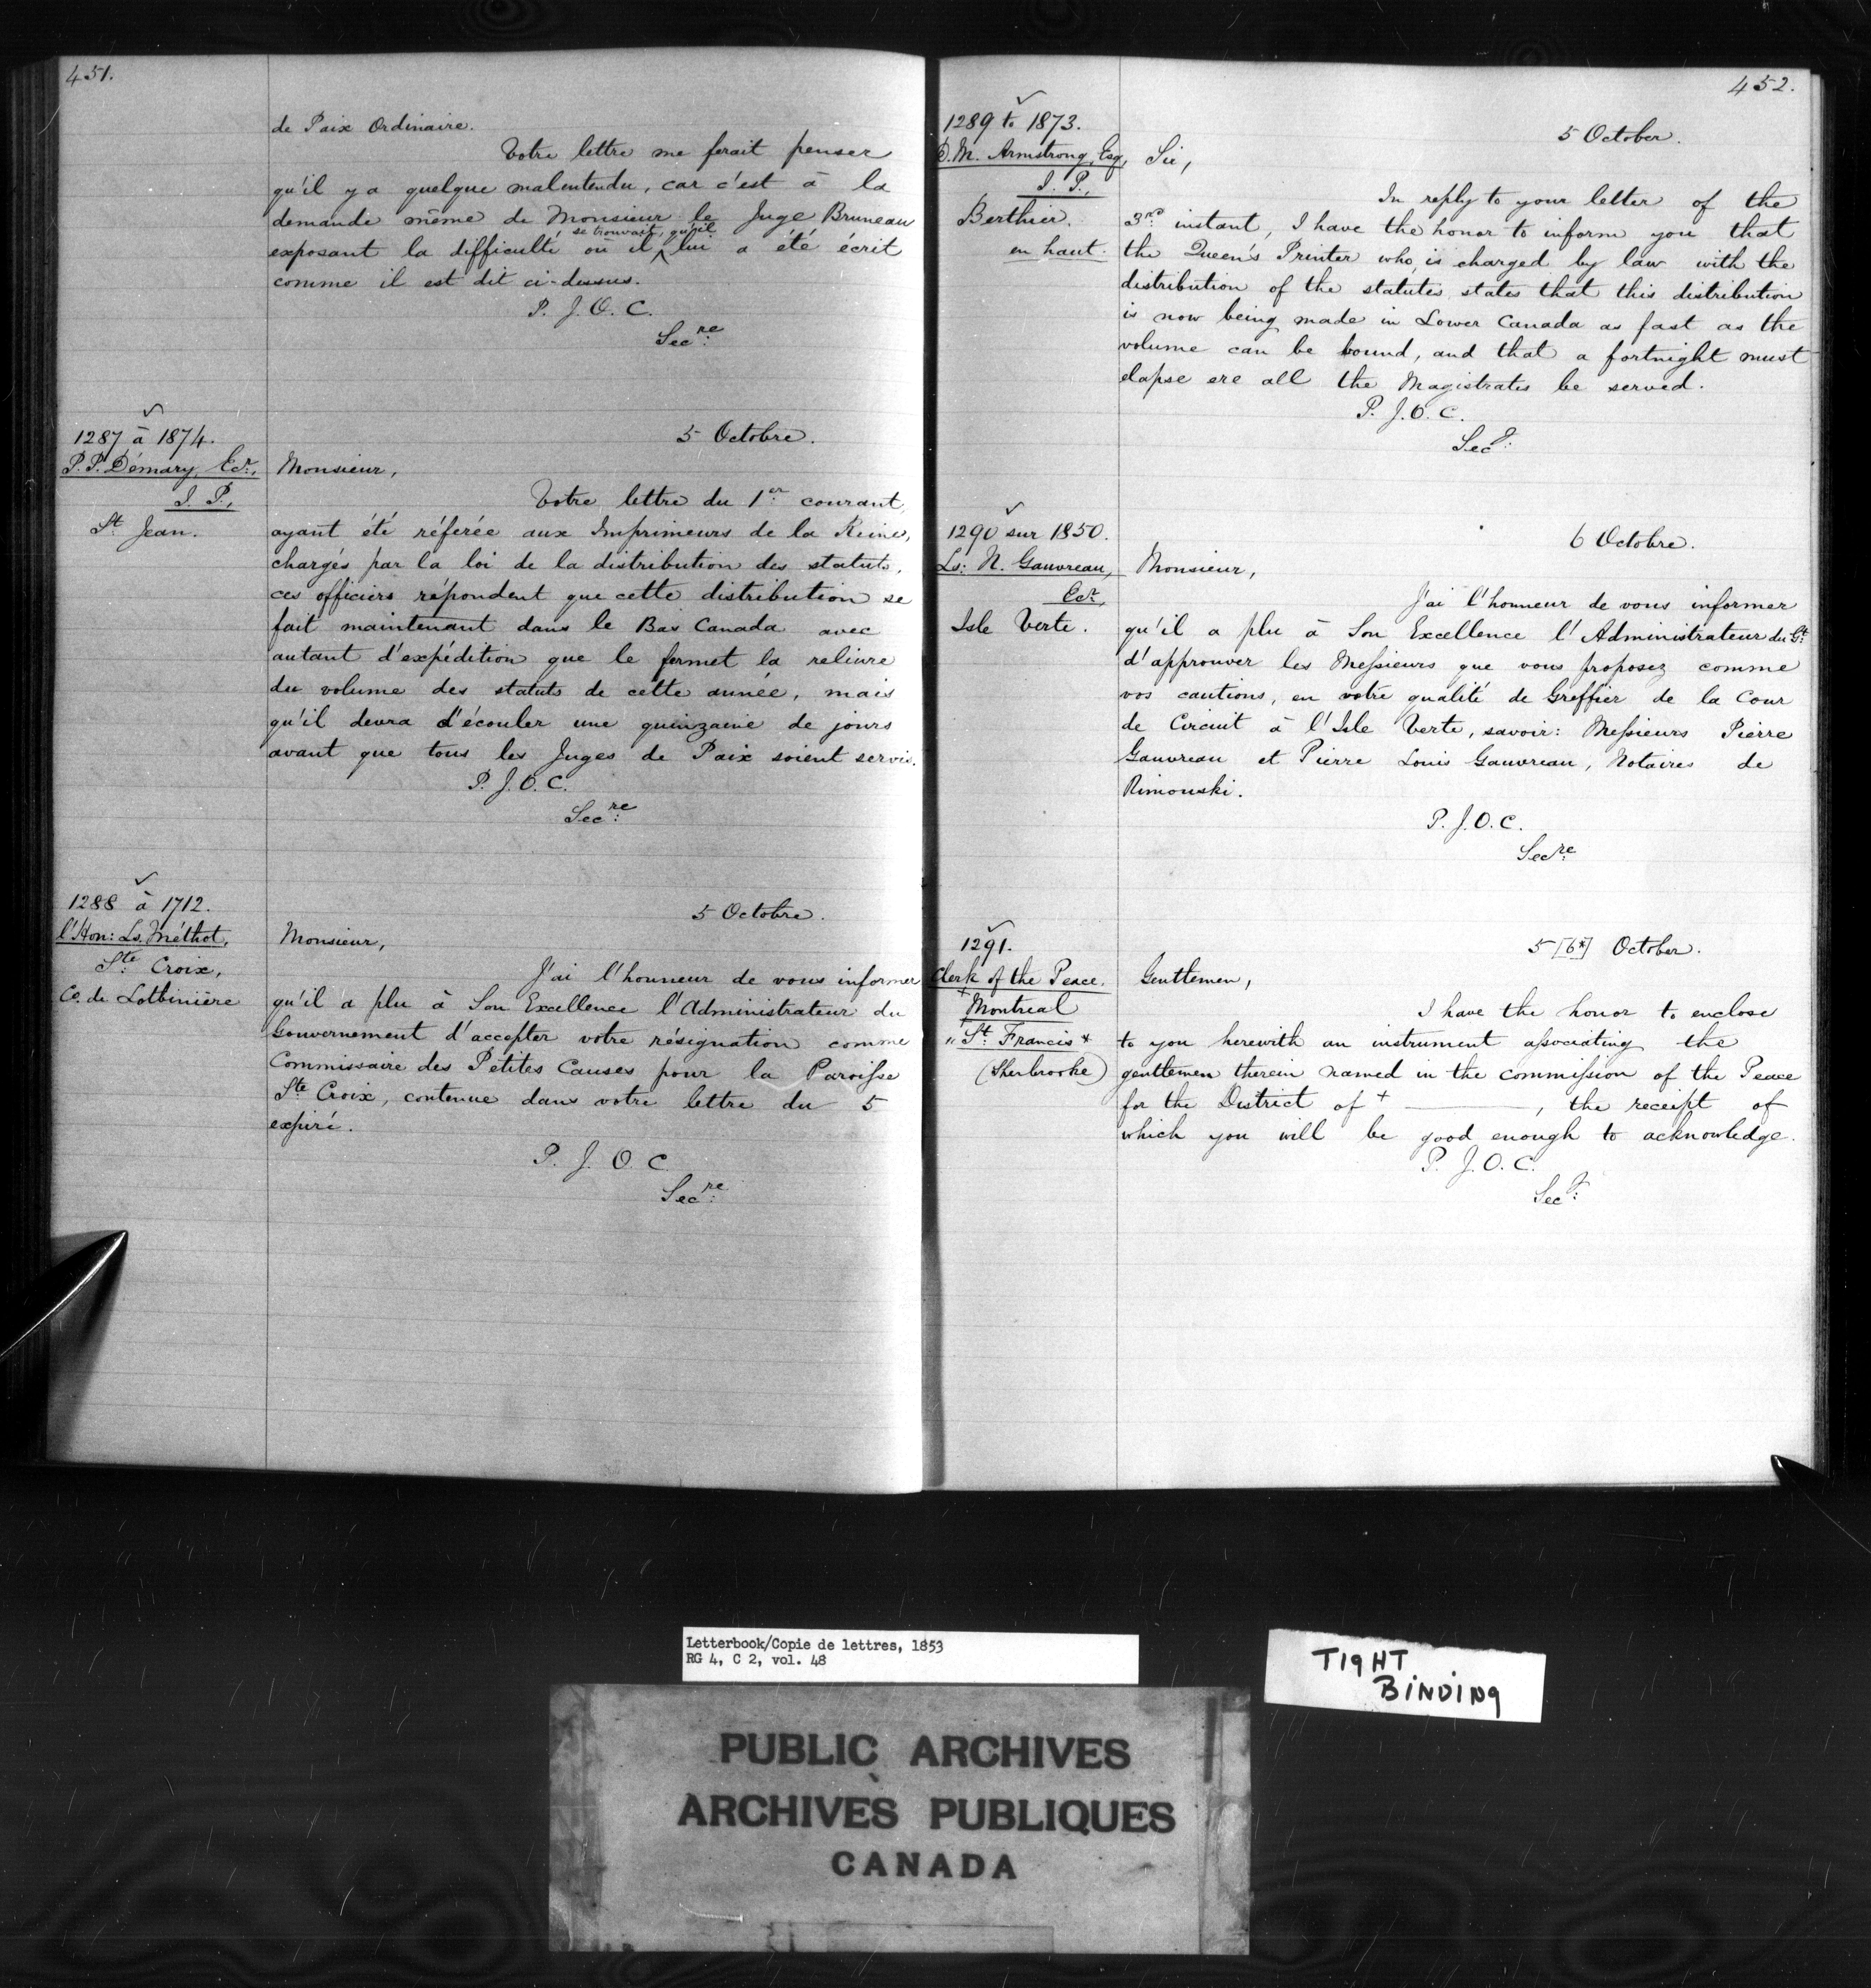 451.
de Paix Ordinaire.
Votre lettre me ferait penser
qu'il y a quelque malentendu, car c'est à la
demande même de Monsieur le Juge Bruneau
se trouvait, qu'il
exposant la difficulté où il ^ lui a été écrit
comme il est dit ci-dessus.
P. J. O. C.
Secre:
1287 à 1874.
P. P. Démary, Ecr.,
J. P.,
St Jean.
5 Octobre.
Monsieur,
Votre lettre du 1er courant,
ayant été réferée aux Imprimeurs de la Reine,
chargés par la loi de la distribution des statuts,
ces officiers répondent que cette distribution se
fait maintenant dans le Bas Canada avec
autant d'expédition que le permet la reliure
du volume des statuts de cette année, mais
qu'il devra d'écouler une quinzaine de jours
avant que tous les Juges de Paix soient servis.
P. J. O. C.
Secre:
1288 à 1712.
l'Hon: Ls. Méthot,
Ste Croix,
Co. de Lotbinière
5 Octobre.
Monsieur,
J'ai l'honneur de vous informer
qu'il a plu à Son Excellence l'Administrateur du
Gouvernement d'accepter votre résignation comme
Commissaire des Petites Causes pour la Paroisse
Ste Croix, contenue dans votre lettre du 5
expiré.
P. J. O. C.
Secre:
452.
1289 to 1873.
D. M. Armstrong, Esq,
J. P.,
Berthier.
en haut.
5 October.
Sir,
In reply to your letter of the
3rd instant, I have the honor to inform you that
the Queen's Printer who is charged by law with the
distribution of the statutes states that this distribution
is now being made in Lower Canada as fast as the
volume can be bound, and that a fortnight must
elapse ere all the Magistrates be served.
P. J. O. C.
Secy:
1290 sur 1850.
Ls: N. Gauvreau,
Ecr.
Isle Verte.
6 Octobre.
Monsieur,
J'ai l'honneur de vous informer
qu'il a plu à Son Excellence l'Administrateur du Gt.
d'approuver les Messieurs que vous proposez comme
vos cautions, en votre qualité de Greffier de la Cour
de Circuit à l'Isle Verte, savoir: Messieurs Pierre
Gauvreau et Pierre Louis Gauvreau, Notaires de
Rimouski.
P. J. O. C.
Secre:
1291.
Clerk of the Peace.
+ Montreal
" St. Francis *
(Sherbrooke)
5 [6*] October.
Gentlemen,
I have the honor to enclose
to you herewith an instrument associating the
gentlemen therein named in the commission of the Peace
for the District of + ———, the receipt of
which you will be good enough to acknowledge.
P. J. O. C.
Secy:
Letterbook/Copie de lettres, 1853
RG 4, C 2, vol. 48
TIGHT
BINDING
PUBLIC ARCHIVES
ARCHIVES PUBLIQUES
CANADA